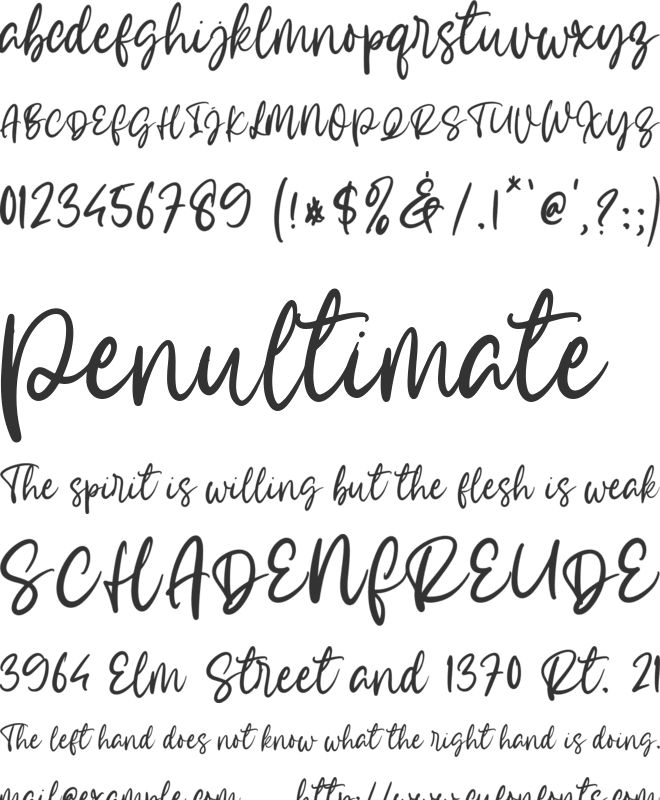 abcdefghijklmnopqrstuvwxyz
ABCDEFGHIJKLMNOPQRSTUVWXYZ
0123456789 (!*$%&/.|*`@',?:;)
Penultimate
The spirit is willing but the flesh is weak
SCHADENFREUDE
3964 Elm Street and 1370 Rt. 21
The left hand does not know what the right hand is doing.
mail@example.com http://www.cufonfonts.com